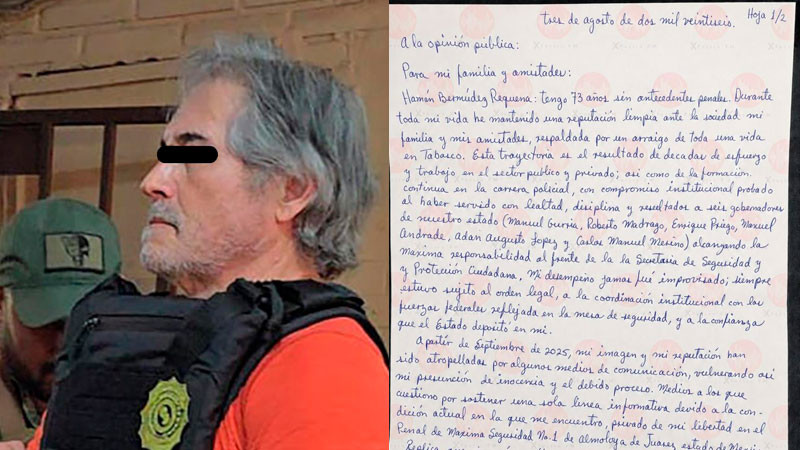 tres de agosto de dos mil veintiseis.
Hoja 1/2
A la opinión pública:
Para mi familia y amistades:
Hamín Bermúdez Requena: tengo 73 años sin antecedentes penales. Durante
toda mi vida he mantenido una reputación limpia ante la sociedad mi
familia y mis amistades, respaldada por un arraigo de toda una vida
en Tabasco. Esta trayectoria es el resultado de decadas de esfuerzo
y trabajo, en el sector publico y privado; asi como de la formación
continua en la carrera policial, con compromiso institucional probado
al haber servido con lealtad, disciplina y resultados a seis gobernadores
de nuestro estado (Manuel Gurría, Roberto Madrazo, Enrique Priego, Manuel
Andrade, Adan Augusto Lopez y Carlos Manuel Merino) alcanzando la
Máxima responsabilidad al frente de la la Secretaria de Seguridad y
y Protección Ciudadana. Mi desempeño jamas fué improvisado; siempre
estuvo sujeto al orden legal, a la coordinación institucional con las
fuerzas federales reflejada en la mesa de seguridad, y a la confianza
que el Estado depositó en mi.
A partir de Septiembre de 2025, mi imagen y mi reputación han
sido atropelladas por algunos medios de comunicación, vulnerando asi
mi presunción de inocencia y el debido proceso. Medios a los que
cuestiono por sostener una sola linea informativa devido a la con-
dición actual en la que me encuentro, privado de mi libertad en el
Penal de Maxima Seguridad No.1 de Almoloya de Juarez, estado de